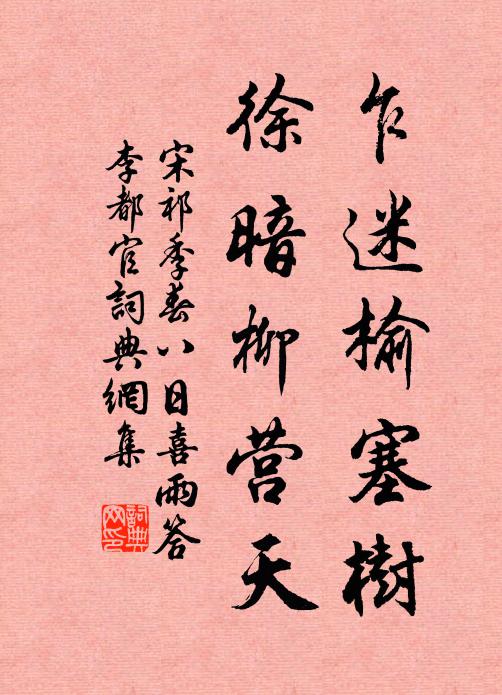 乍迷榆塞樹
徐暗柳营天
宋祁季春八日喜雨答
李都官詞典網集
詞典
网印